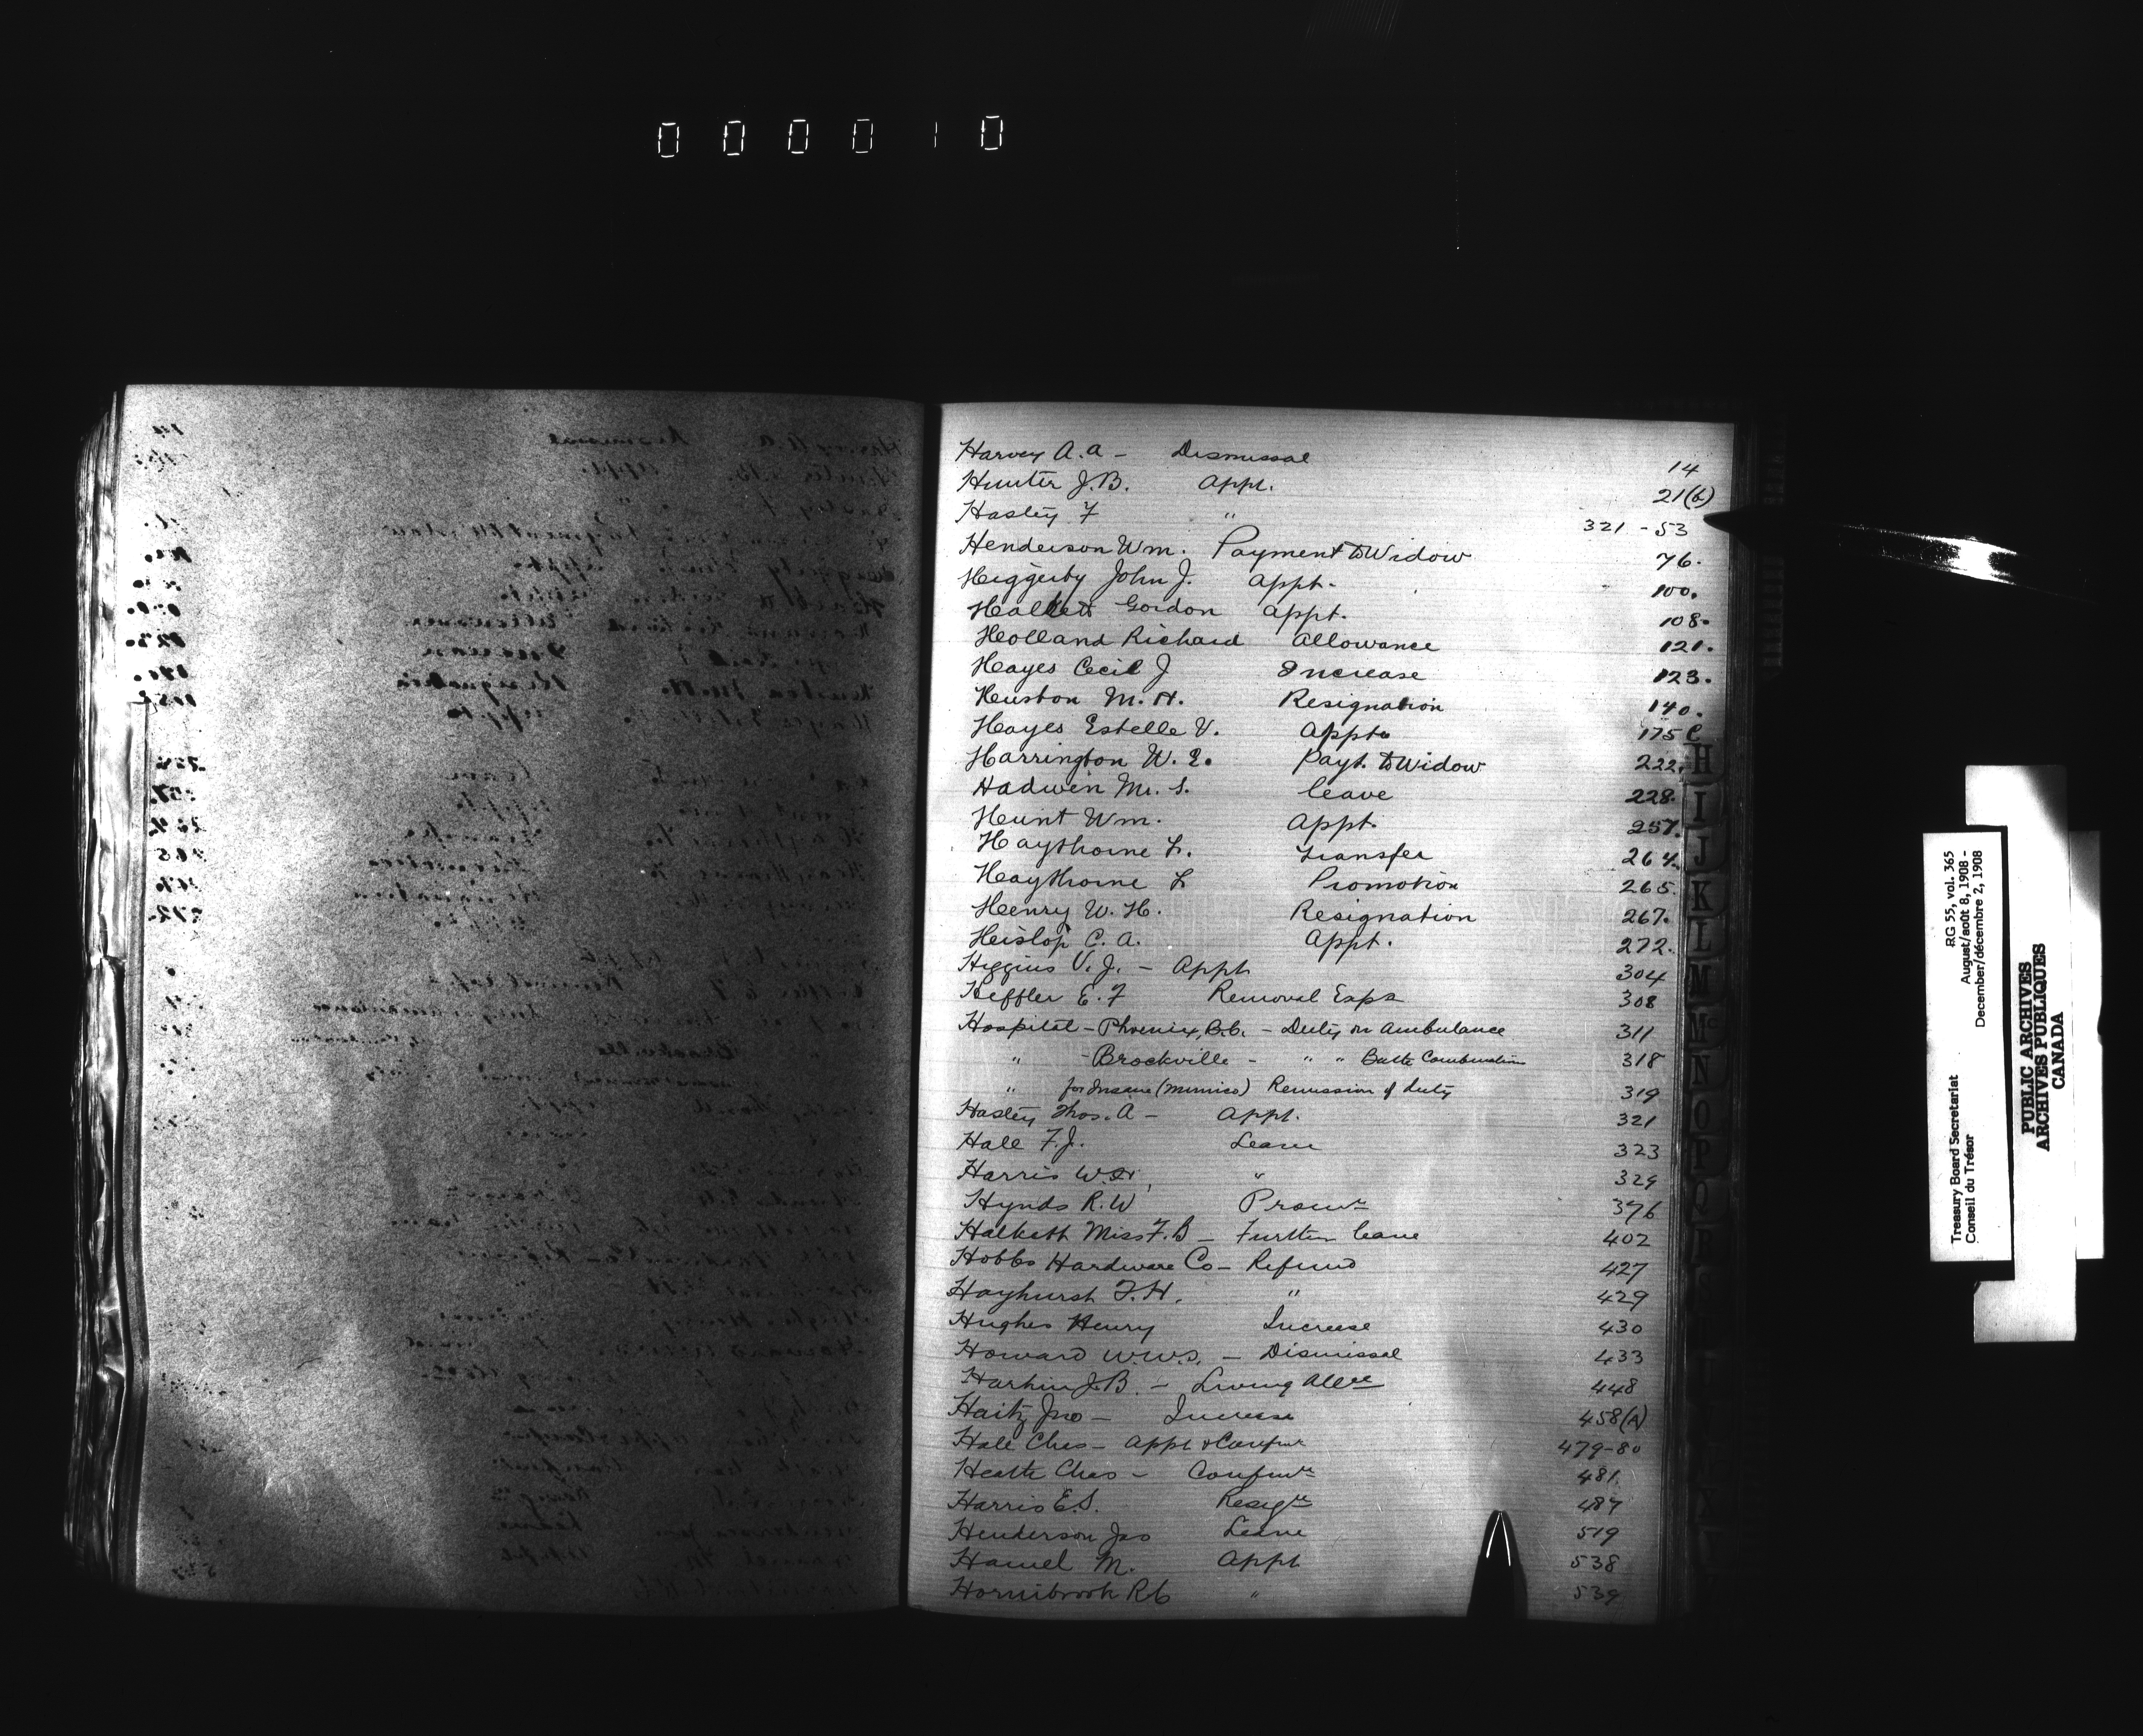 000010
Harvey A. A - Dismissal 14
Hunter J. B. Appt. 21(b)
Hasley F " 321 - 53
Henderson Wm. Payment to Widow 76.
Higgerby John J. Appt. 100.
Halkett Gordon Appt. 108.
Holland Richard Allowance 121.
Hayes Cecil J Increase 123.
Heuston M. H. Resignation 140.
Hayes Estelle V. Appt. 175 C
Harrington W. E. Payt. to Widow 222.
Hadwen Mr. S. Leave 228.
Hunt Wm. Appt. 257.
Haythorne L. Transfer 264.
Haythorne L Promotion 265.
Henry W. H. Resignation 267.
Heislop C. A. Appt. 272.
Higgins V. J. - Appt 304
Heffler E. F Removal Exps 308
Hospital - Phoenix, B.C. - Duty on Ambulance 311
" - Brockville - " " Bath Combination 318
" for Insane (Mimico) Remission of duty 319
Hasley Thos. A - Appt. 321
Hale F. J. Leave 323
Harris W. " 329
Hynds R. W Promn 376
Halkett Miss F. B - Further leave 402
Hobbs Hardware Co - Refund 427
Hayhurst T. H. " 429
Hughes Henry Increase 430
Howard W. W. S. - Dismissal 433
Harkin J. B. - Living Allce 448
Haitz Jno - Increase 458(A)
Hale Chas - Appt & Confmn 479-80
Heath Chas - Confmn 481
Harris E. S. Resign 487
Henderson Jas Leave 519
Hamel M. Appt 538
Hornibrook R C " 539
H
I
J
K
L
M
Mc
N
O
P
Q
R
S
RG 55, vol. 365
August/août 8, 1908 -
December/décembre 2, 1908
Treasury Board Secretariat
Conseil du Trésor
PUBLIC ARCHIVES
ARCHIVES PUBLIQUES
CANADA